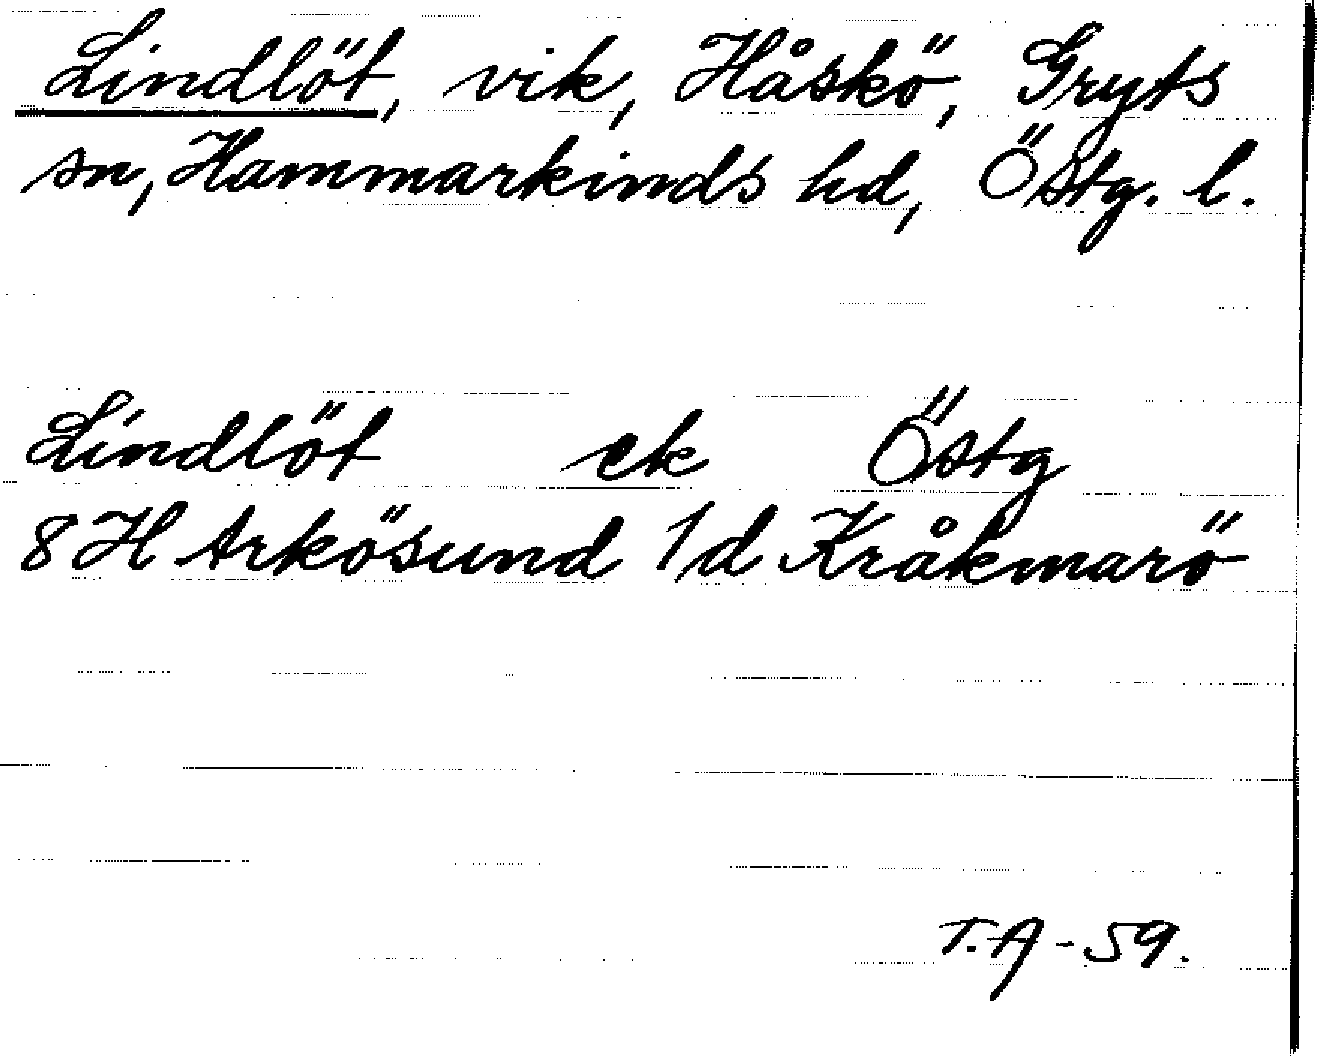 Lindlöt, vik, Håskö, Gryts
sn, Hammarkinds hd, Östg. l.
Lindlöt ek Östg
8 H Arkösund 1d Kråkmarö
T.A-59.